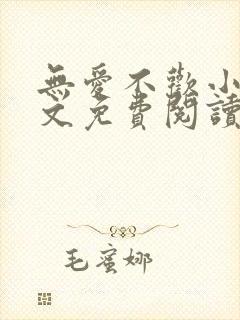 無愛不歡小
文免費閱讀
毛蜜娜